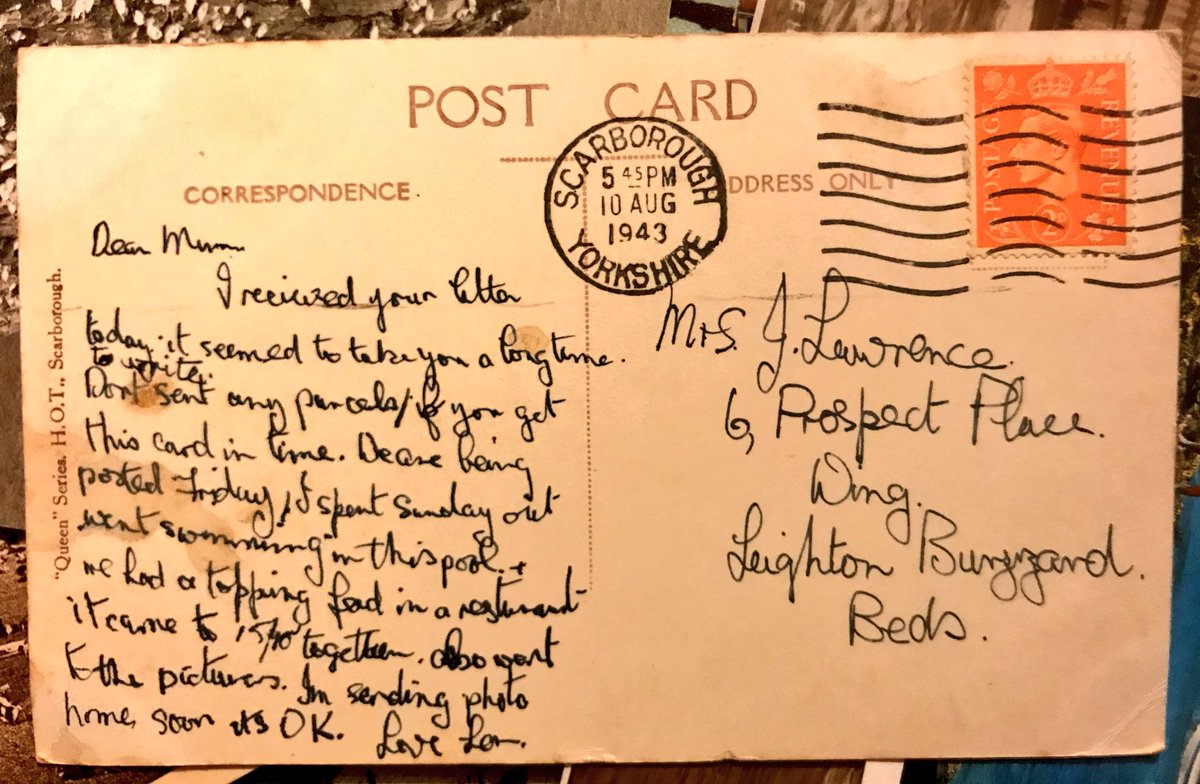 POST CARD
CORRESPONDENCE.
DDRESS ONLY
SCARBOROUGH
5 45 PM
10 AUG
1943
YORKSHIRE
POSTAGE
REVENUE
"Queen" Series. H.O.T., Scarborough.
Dear Mum
I recieved your letter
today, it seemed to take you a long time.
to write.
Dont sent any parcels, if you get
this card in time. being
posted Friday, I spent Sunday out
went swimming in this pool. +
we had a topping feed in a resturant
it came to together. also went
to the pictures. Im sending photo
home, soon its OK.
Love Len.
Mrs. J. Lawrence.
6, Prospect Place.
Wing.
Leighton Buzzard.
Beds.